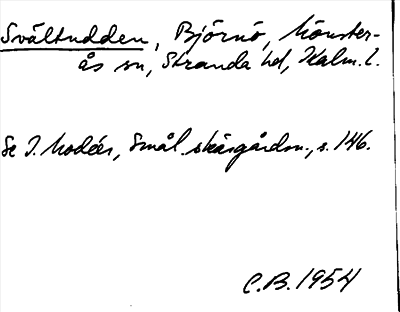 Svältudden, Björnö, Mönster-
ås sn, Stranda hd, Kalm. l.
Se I. Modéer, Smål. skärgårdsn., s. 146.
C.B. 1954